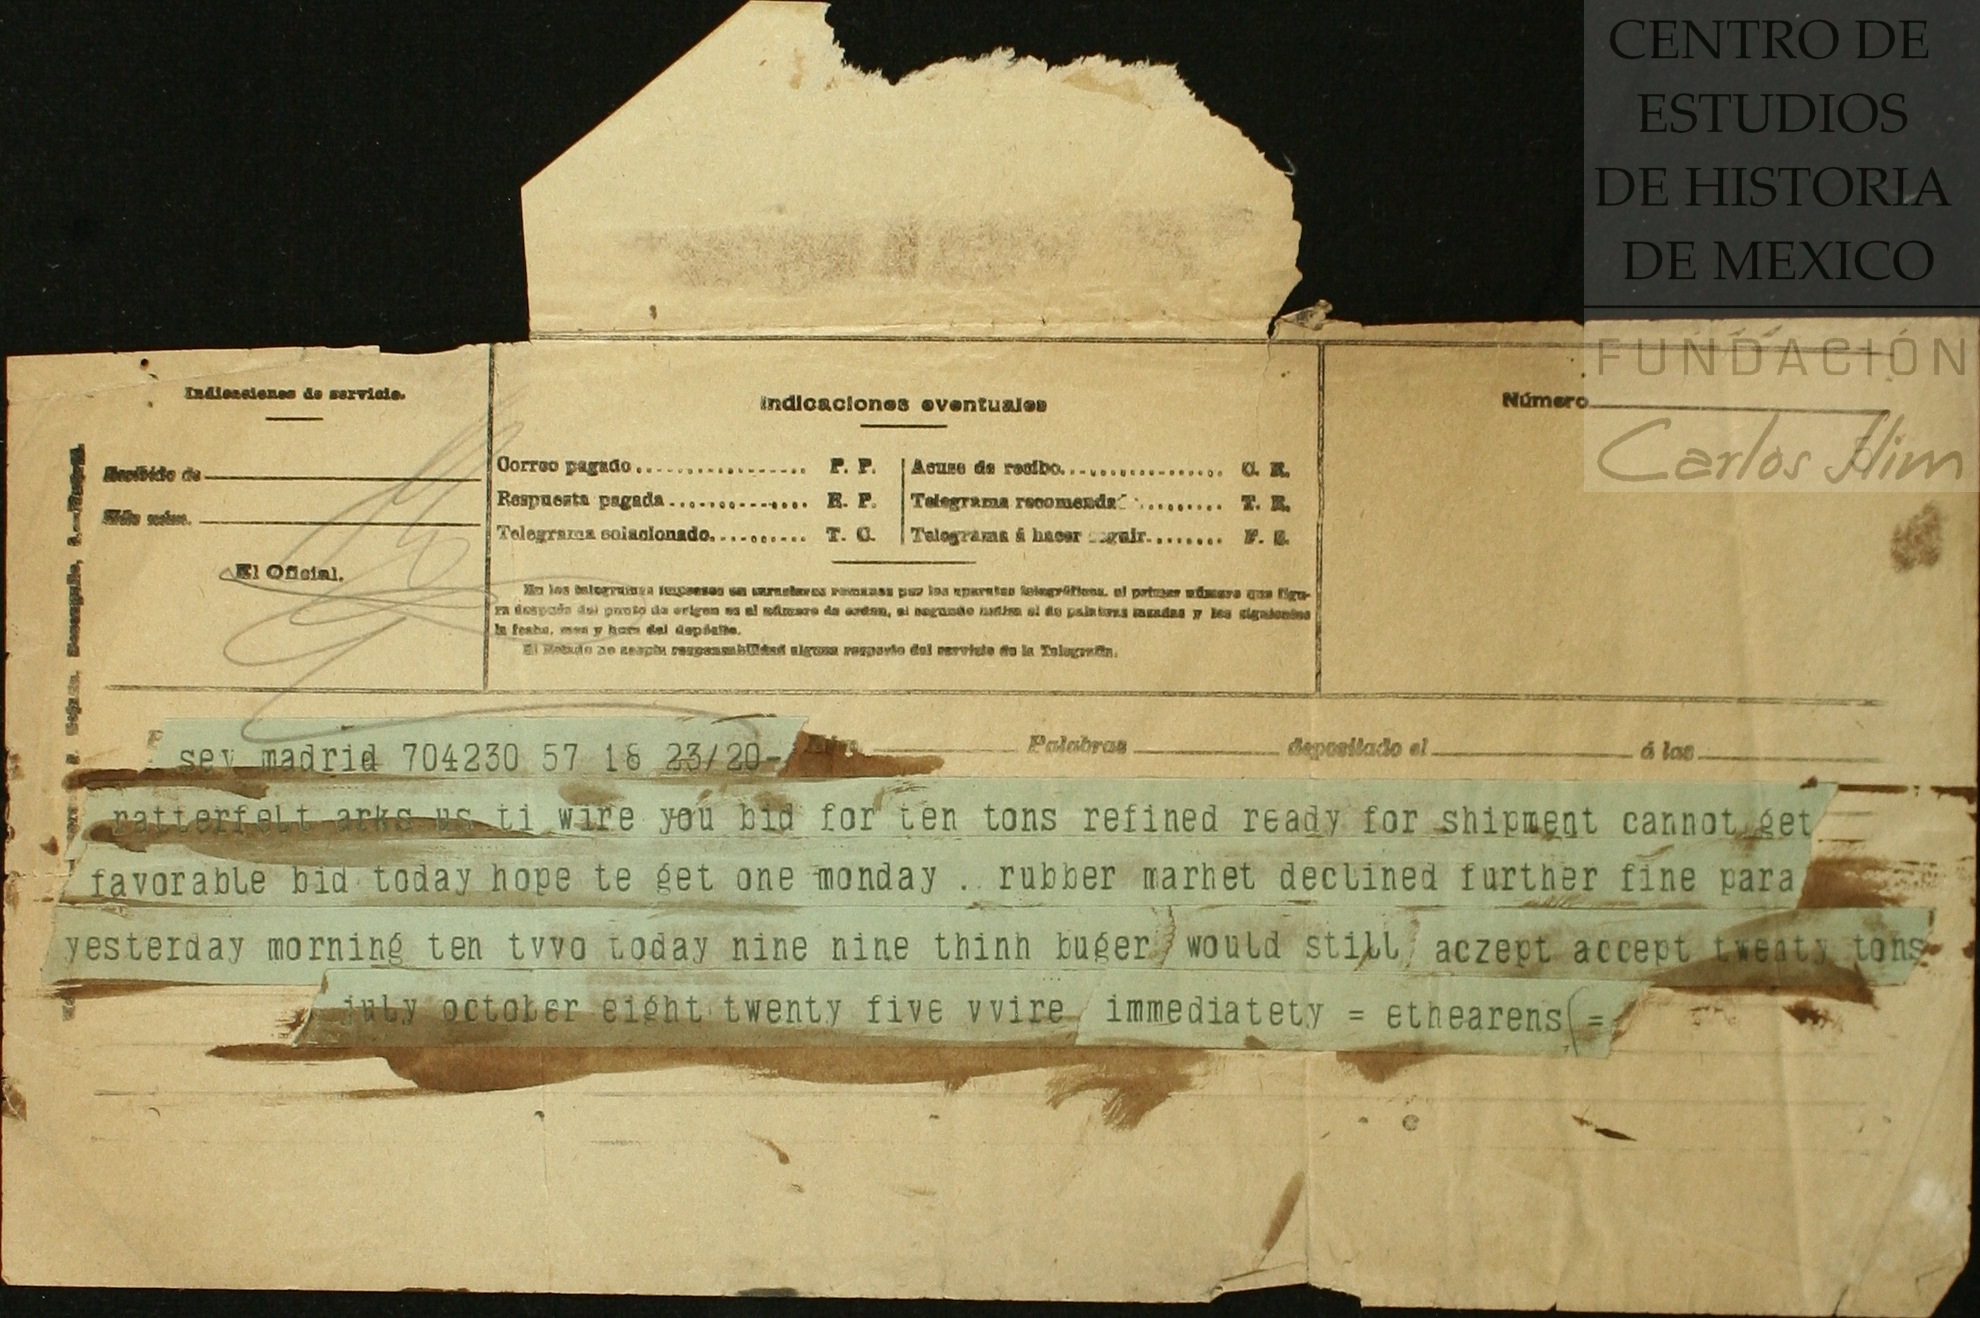 CENTRO DE
ESTUDIOS
DE HISTORIA
DE MEXICO
FUNDACIÓN
Carlos Slim
Indicaciones de servicio.
Recibido de
El Oficial.
Indicaciones eventuales
Correo pagado.................. P. P.
Respuesta pagada.............. R. P.
Telegrama colacionado.......... T. C.
Acuse de recibo.................. C. R.
Telegrama recomenda .......... T. R.
Telegrama á hacer seguir........ F. S.
En los telegramas impresos en caracteres romanos por los aparatos telegráficos, el primer número que figu-
ra después del punto de origen es el número de orden, el segundo indica el de palabras tasadas y los siguientes
la fecha, mes y hora del depósito.
El Estado no acepta responsabilidad alguna respecto del servicio de la Telegrafía.
Número
Palabras depositado el á las
sev madrid 704230 57 18 23/20-
ratterfelt arks us ti wire you bid for ten tons refined ready for shipment cannot get
favorable bid today hope te get one monday . rubber marhet declined further fine para
yesterday morning ten tvvo today nine nine thinh buger would still aczept accept twenty tons
july october eight twenty five vvire immediatety = ethearens =